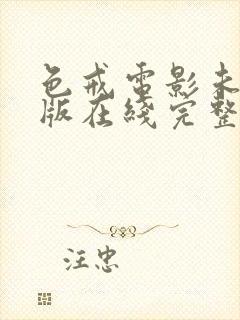 色戒电影未
版在线完整
汪忠